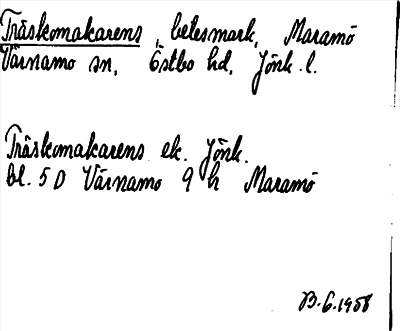 Träskomakarens, betesmark, Maramö
Värnamo sn, Östbo hd, Jönk. l.
Träskomakarens ek. Jönk.
bl. 5 D Värnamo 9 h Maramö
B. 6. 1958